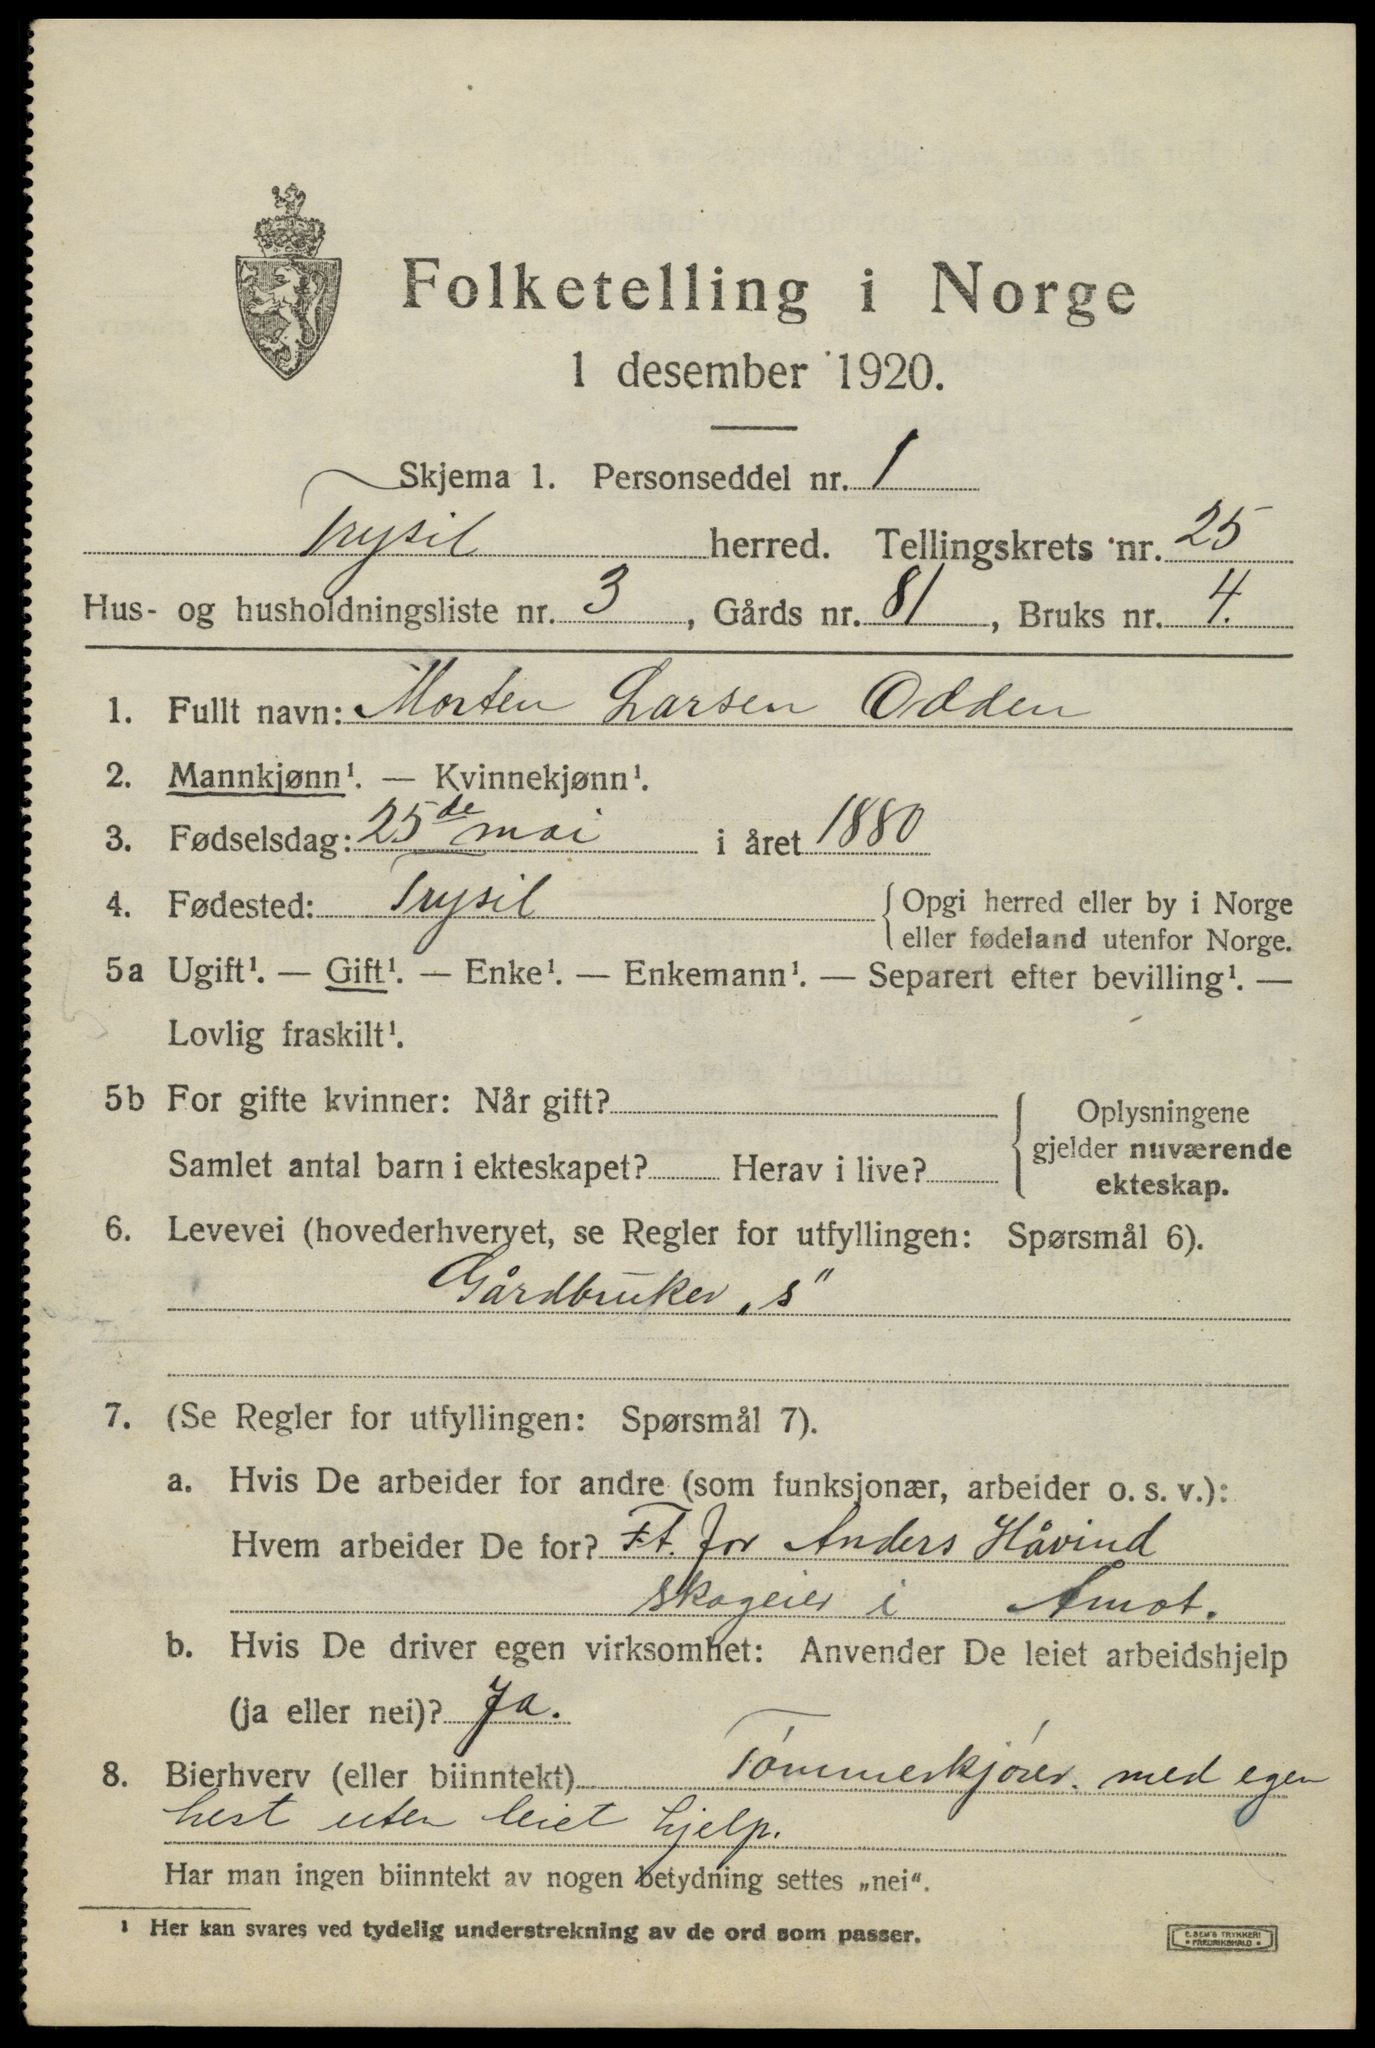 Folketelling i Norge
1 desember 1920.
Skjema 1. Personseddel nr. 1
Trysil herred. Tellingskrets nr. 25
Hus- og husholdningsliste nr. 3, Gårds nr. 81, Bruks nr. 4.
1. Fullt navn: Morten Larsen Odden
2. Mannkjønn¹. — Kvinnekjønn¹.
3. Fødselsdag: 25de mai i året 1880
4. Fødested: Trysil { Opgi herred eller by i Norge
eller fødeland utenfor Norge.
5a Ugift¹. — Gift¹. — Enke¹. — Enkemann¹. — Separert efter bevilling¹. —
Lovlig fraskilt¹.
5b For gifte kvinner: Når gift? { Oplysningene
gjelder nuværende
Samlet antal barn i ekteskapet? Herav i live? ekteskap.
6. Levevei (hovederhvervet, se Regler for utfyllingen: Spørsmål 6).
Gårdbruker „s"
7. (Se Regler for utfyllingen: Spørsmål 7).
a. Hvis De arbeider for andre (som funksjonær, arbeider o. s. v.):
Hvem arbeider De for? Ft. for Anders Håvind
skogeier i Åmot.
b. Hvis De driver egen virksomhet: Anvender De leiet arbeidshjelp
(ja eller nei)? Ja.
8. Bierhverv (eller biinntekt) Tømmerkjører. med egen
hest uten leiet hjelp.
Har man ingen biinntekt av nogen betydning settes „nei".
¹ Her kan svares ved tydelig understrekning av de ord som passer.
E. SEM'S TRYKKERI
• FREDRIKSHALD •